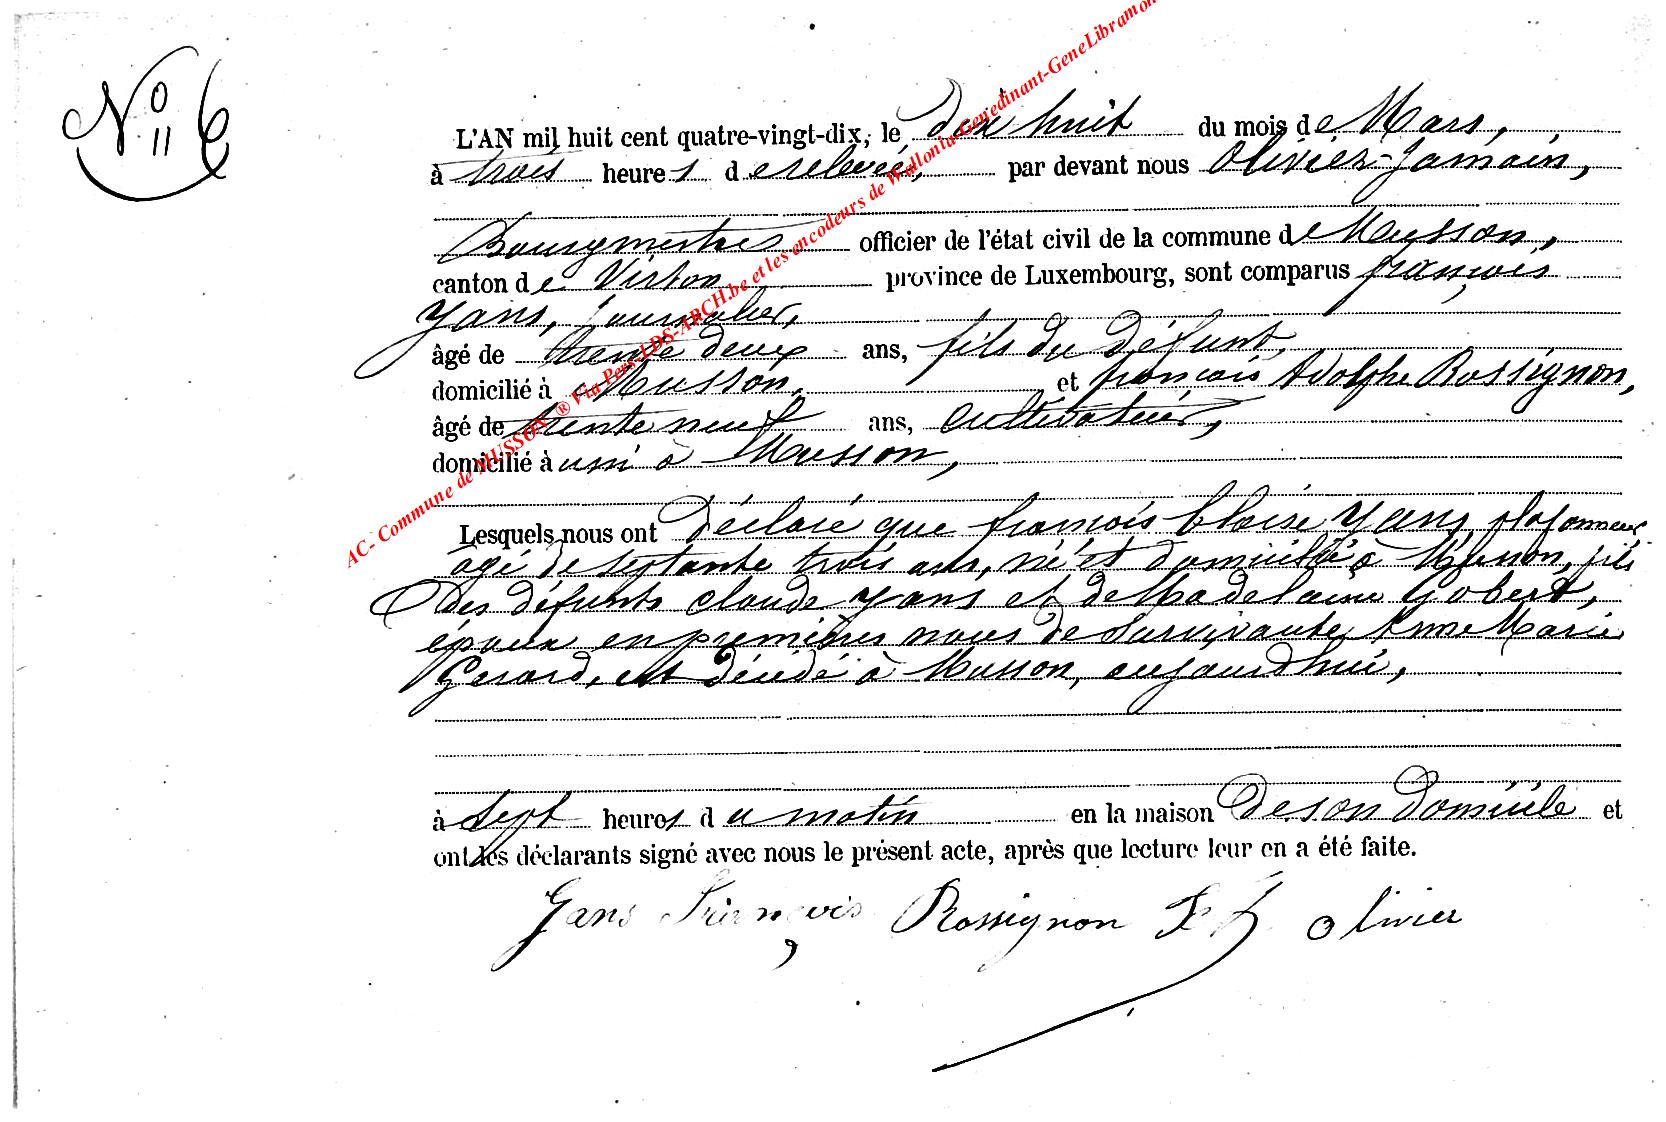 N° 6
L'AN mil huit cent quatre-vingt-dix, le dix huit du mois de Mars,
à trois heures de relevée, par devant nous Olivier-Jamain,
Bourgmestre officier de l'état civil de la commune de Musson,
canton de Virton province de Luxembourg, sont comparus françois
Yans, journalier,
âgé de trente deux ans, fils du défunt,
domicilié à Musson, et françois Adolphe Rossignon,
âgé de trente neuf ans, cultivateur,
domicilié à ussi à Musson,
Lesquels nous ont déclaré que françois blaise Yans plafonneur
âgé de septante trois ans, né et domicilié à Musson, fils
des défunts claude Yans et de Madelaine Gobert,
époux en premières noces de survivante Anne Marie
Gerard, est décédé à Musson, aujourdhui,
à sept heures du matin en la maison de son domicile et
ont les déclarants signé avec nous le présent acte, après que lecture leur en a été faite.
Yans François Rossignon Olivier
AC- Commune de MUSSON ® Via Pers-LDS-ARCH.be et les encodeurs de Wallonia-Genedinant-GeneLibramon